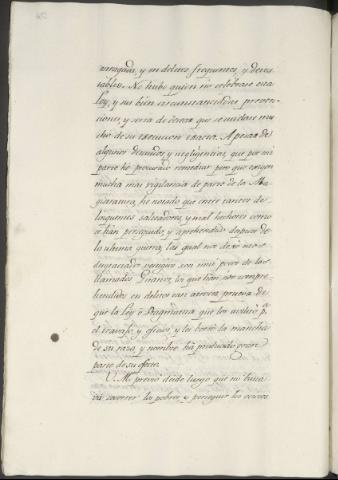 arraigada, y en delitos frequentes, y detes-
tables. No hubo quien no celebrase esta
Ley, y sus bien circunstanciadas preven-
ciones, y seria de desear que se cuidase mu-
cho de su execucion exacta. A pesar de
algunos descuidos, y negligencias, que por mi
parte he procurado remediar pero que exigen
mucha mas vigilancia de parte de la Ma-
gistratura, he notado que entre tantos de-
linquentes salteadores, y mal hechores como
se han perseguido, y aprehendido despues de
la ultima guerra, las qual nos dejó
desgraciados siempre son mui pocos de los
llamados Gitanos, los que han sido compre-
hendidos en delitos tan atroces, prueba de
que la Ley o Pragmatica que los habilitó pª
el travajo, y oficios, y les borró la mancha
de su raza, y nombre ha producido gran
parte de su efecto.
V. M. previó desde luego que no basta-
va socorrer los pobres, y perseguir los ociosos